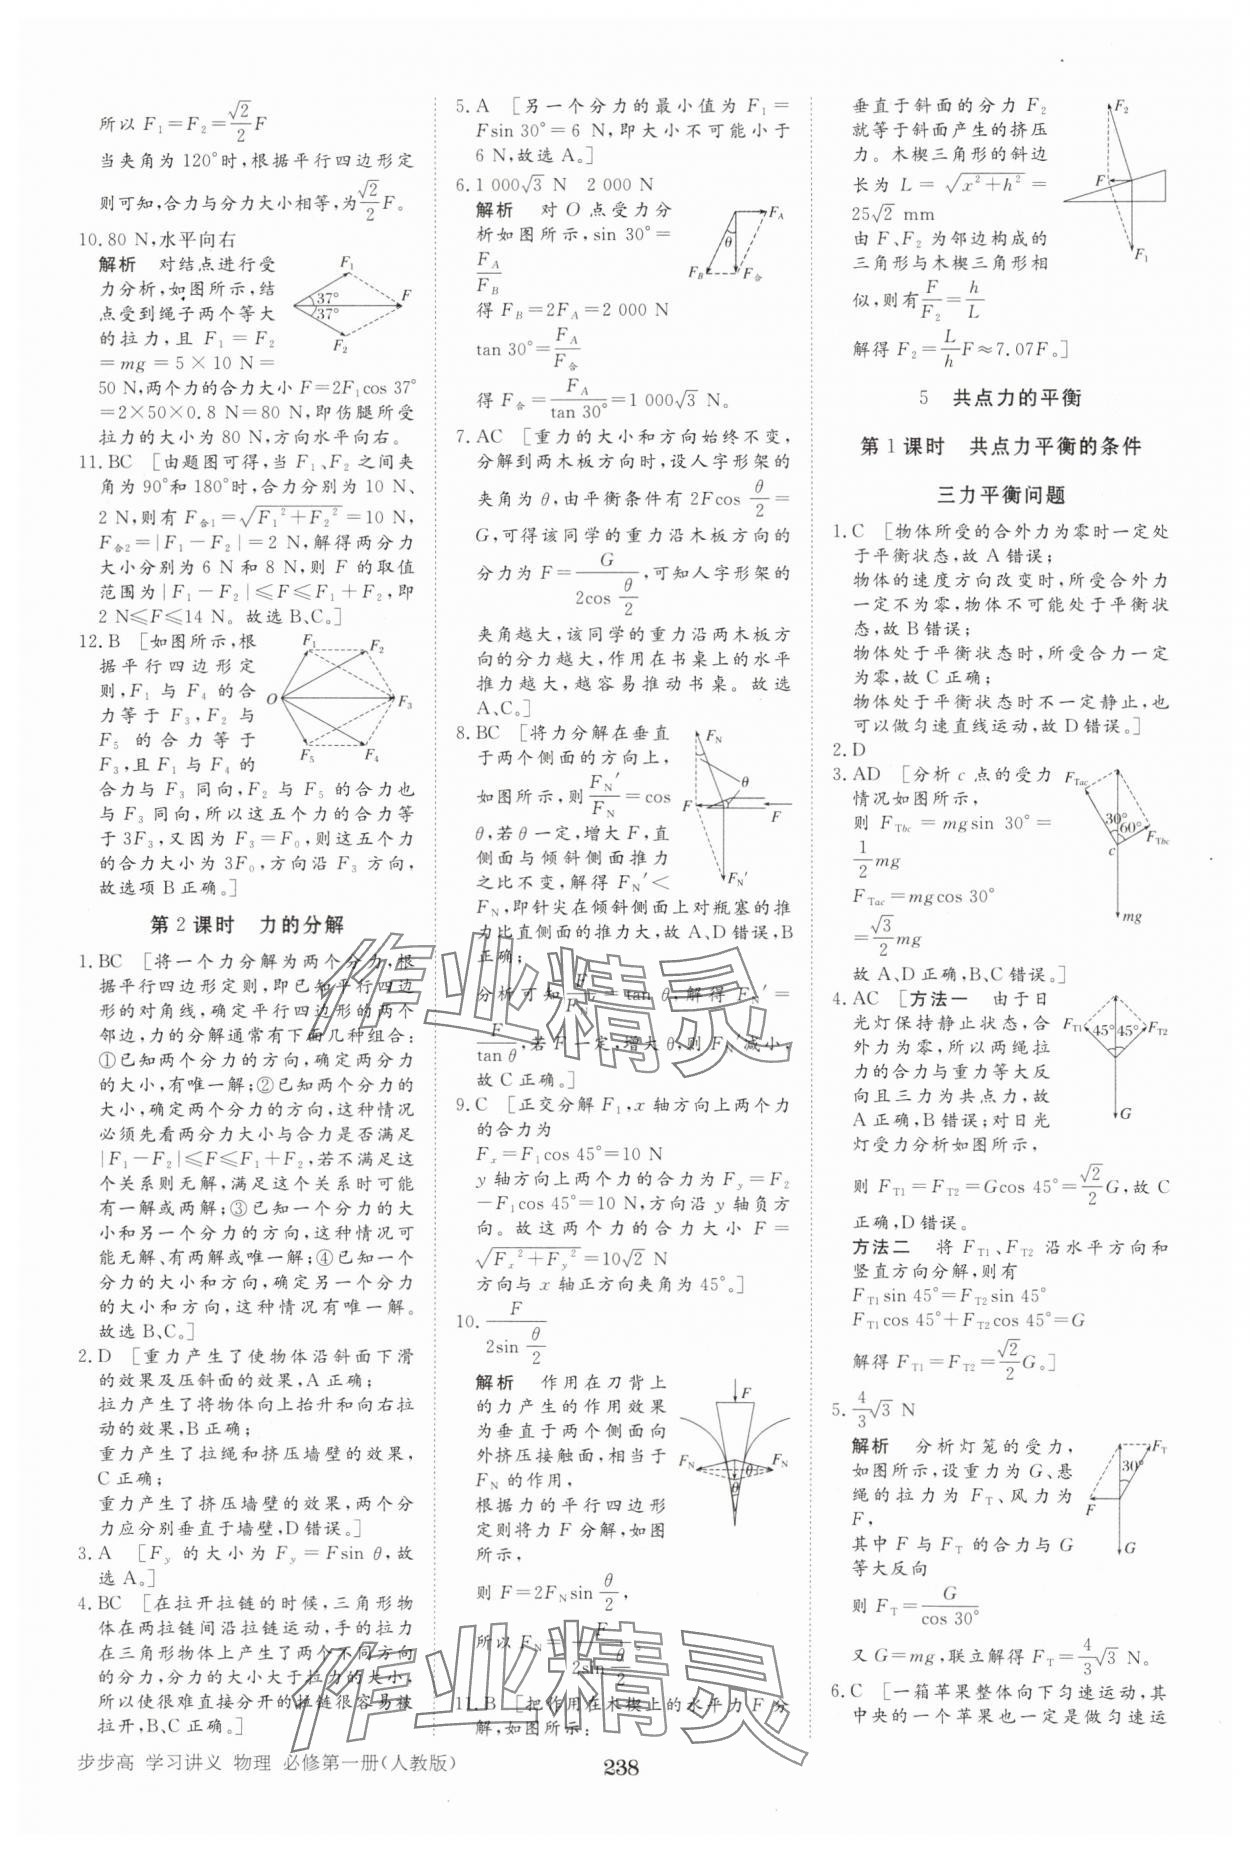 所以 F₁=F₂=√2/2 F
当夹角为 120°时,根据平行四边形定
则可知,合力与分力大小相等,为√2/2 F。
10.80 N,水平向右
解析 对结点进行受
力分析,如图所示,结
点受到绳子两个等大
的拉力,且 F₁=F₂
=mg=5×10 N=
50 N,两个力的合力大小 F=2F₁cos 37°
=2×50×0.8 N=80 N,即伤腿所受
拉力的大小为 80 N,方向水平向右。
F₁
37°
37°
F
F₂
11.BC [由题图可得,当 F₁、F₂ 之间夹
角为 90°和 180°时,合力分别为 10 N、
2 N,则有 F合1=√(F₁²+F₂²)=10 N,
F合2=|F₁-F₂|=2 N,解得两分力
大小分别为 6 N 和 8 N,则 F 的取值
范围为|F₁-F₂|≤F≤F₁+F₂,即
2 N≤F≤14 N。故选 B、C。]
12.B [如图所示,根
据平行四边形定
则,F₁ 与 F₄ 的合
力等于 F₃,F₂ 与
F₅ 的合力等于
F₃,且 F₁ 与 F₄ 的
合力与 F₃ 同向,F₂ 与 F₅ 的合力也
与 F₃ 同向,所以这五个力的合力等
于 3F₃,又因为 F₃=F₀,则这五个力
的合力大小为 3F₀,方向沿 F₃ 方向,
故选项 B 正确。]
F₁
F₂
O
F₃
F₅
F₄
第 2 课时 力的分解
1.BC [将一个力分解为两个分力,根
据平行四边形定则,即已知平行四边
形的对角线,确定平行四边形的两个
邻边,力的分解通常有下面几种组合:
①已知两个分力的方向,确定两分力
的大小,有唯一解;②已知两个分力的
大小,确定两个分力的方向,这种情况
必须先看两分力大小与合力是否满足
|F₁-F₂|≤F≤F₁+F₂,若不满足这
个关系则无解,满足这个关系时可能
有一解或两解;③已知一个分力的大
小和另一个分力的方向,这种情况可
能无解、有两解或唯一解;④已知一个
分力的大小和方向,确定另一个分力
的大小和方向,这种情况有唯一解。
故选 B、C。]
2.D [重力产生了使物体沿斜面下滑
的效果及压斜面的效果,A 正确;
拉力产生了将物体向上抬升和向右拉
动的效果,B 正确;
重力产生了拉绳和挤压墙壁的效果,
C 正确;
重力产生了挤压墙壁的效果,两个分
力应分别垂直于墙壁,D 错误。]
3.A [Fy 的大小为 Fy=Fsin θ,故
选 A。]
4.BC [在拉开拉链的时候,三角形物
体在两拉链间沿拉链运动,手的拉力
在三角形物体上产生了两个不同方向
的分力,分力的大小大于拉力的大小,
所以使很难直接分开的拉链很容易被
拉开,B、C 正确。]
5.A [另一个分力的最小值为 F₁=
Fsin 30°=6 N,即大小不可能小于
6 N,故选 A。]
6.1 000√3 N 2 000 N
解析 对 O 点受力分
析如图所示,sin 30°=
FA/FB
得 FB=2FA=2 000 N
tan 30°=FA/F合
得 F合=FA/tan 30°=1 000√3 N。
FA
θ
FB
F合
7.AC [重力的大小和方向始终不变,
分解到两木板方向时,设人字形架的
夹角为 θ,由平衡条件有 2Fcos θ/2=
G,可得该同学的重力沿木板方向的
分力为 F=G/(2cos θ/2),可知人字形架的
夹角越大,该同学的重力沿两木板方
向的分力越大,作用在书桌上的水平
推力越大,越容易推动书桌。故选
A、C。]
8.BC [将力分解在垂直
于两个侧面的方向上,
如图所示,则FN′/FN=cos
θ,若 θ 一定,增大 F,直
侧面与倾斜侧面推力
之比不变,解得 FN′<
FN,即针尖在倾斜侧面上对瓶塞的推
力比直侧面的推力大,故 A、D 错误,B
正确;
分析可知F/FN′=tan θ,解得 FN′=
F/tan θ,若 F 一定,增大 θ,则 FN′减小,
故 C 正确。]
FN
θ
F
F
FN′
9.C [正交分解 F₁,x 轴方向上两个力
的合力为
Fx=F₁cos 45°=10 N
y 轴方向上两个力的合力为 Fy=F₂
-F₁cos 45°=10 N,方向沿 y 轴负方
向。故这两个力的合力大小 F=
√(Fx²+Fy²)=10√2 N
方向与 x 轴正方向夹角为 45°。]
10.F/(2sin θ/2)
解析 作用在刀背上
的力产生的作用效果
为垂直于两个侧面向
外挤压接触面,相当于
FN 的作用,
根据力的平行四边形
定则将力 F 分解,如图
所示,
则 F=2FNsin θ/2,
所以 FN=F/(2sin θ/2)。
F
FN
FN
θ
11.B [把作用在木楔上的水平力 F 分
解,如图所示:
垂直于斜面的分力 F₂
就等于斜面产生的挤压
力。木楔三角形的斜边
长为 L=√(x²+h²)=
25√2 mm
由 F、F₂ 为邻边构成的
三角形与木楔三角形相
似,则有F/F₂=h/L
解得 F₂=L/h F≈7.07F。]
F₂
F
F₁
5 共点力的平衡
第 1 课时 共点力平衡的条件
三力平衡问题
1.C [物体所受的合外力为零时一定处
于平衡状态,故 A 错误;
物体的速度方向改变时,所受合外力
一定不为零,物体不可能处于平衡状
态,故 B 错误;
物体处于平衡状态时,所受合力一定
为零,故 C 正确;
物体处于平衡状态时不一定静止,也
可以做匀速直线运动,故 D 错误。]
2.D
3.AD [分析 c 点的受力
情况如图所示,
则 FTbc=mgsin 30°=
1/2 mg
FTac=mgcos 30°
=√3/2 mg
故 A、D 正确,B、C 错误。]
FTac
30°
60°
FTbc
c
mg
4.AC [方法一 由于日
光灯保持静止状态,合
外力为零,所以两绳拉
力的合力与重力等大反
向且三力为共点力,故
A 正确,B 错误;对日光
灯受力分析如图所示,
则 FT1=FT2=Gcos 45°=√2/2 G,故 C
正确,D 错误。
方法二 将 FT1、FT2 沿水平方向和
竖直方向分解,则有
FT1sin 45°=FT2sin 45°
FT1cos 45°+FT2cos 45°=G
解得 FT1=FT2=√2/2 G。]
FT1
45°
45°
FT2
G
5.4/3 √3 N
解析 分析灯笼的受力,
如图所示,设重力为 G、悬
绳的拉力为 FT、风力为
F,
其中 F 与 FT 的合力与 G
等大反向
则 FT=G/cos 30°
又 G=mg,联立解得 FT=4/3 √3 N。
FT
30°
F
G
6.C [一箱苹果整体向下匀速运动,其
中央的一个苹果也一定是做匀速运
作业精灵
作业精灵
步步高 学习讲义 物理 必修第一册(人教版)
238